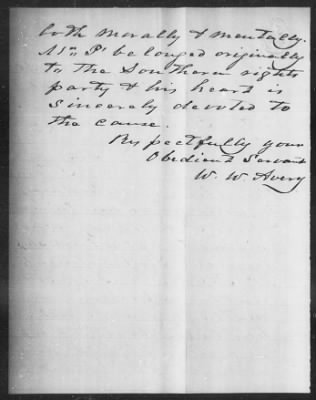 both morally & mentally.
Mr P. belonged originally
to the Southern rights
party & his heart is
sincerely devoted to
the cause.
Respectfully your
Obedient Servant
W. W. Avery